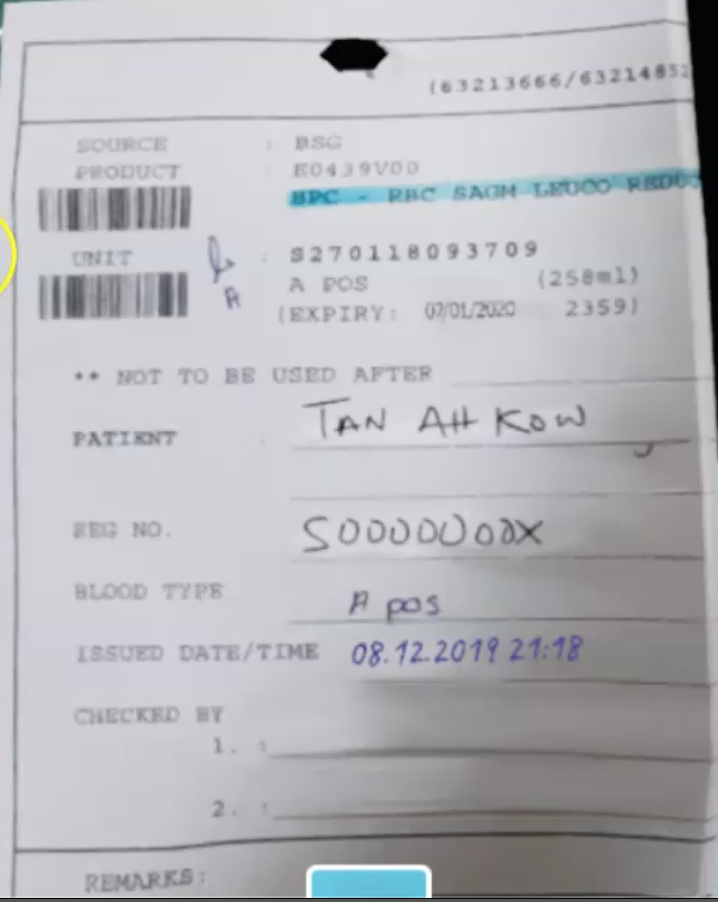 (63213666/63214852
SOURCE : BSG
PRODUCT : E0439V00
BPC - RBC SAGM LEUCO REDUC
UNIT : S270118093709
A
A POS (258ml)
(EXPIRY: 07/01/2020 2359)
** NOT TO BE USED AFTER
PATIENT : TAN AH KOW
REG NO. S0000000X
BLOOD TYPE A pos
ISSUED DATE/TIME 08.12.2019 21:18
CHECKED BY
1. :
2. :
REMARKS: